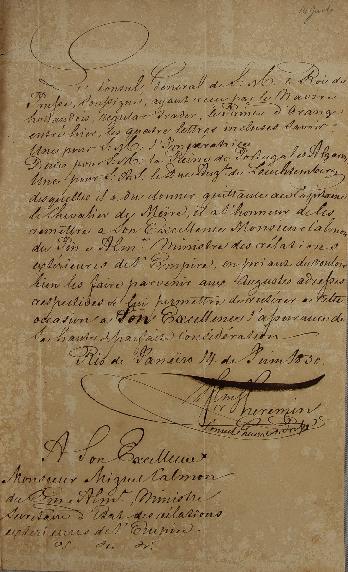 Le Consul Général de S. M. le Roi de
Prusse, soussigné, ayant reçu par le Navire
hollandois, Regular Trader, le Prince d'Orange
entré hier, les quatre lettres incluses savoir:
Une pour S. M. l'Impératrice
Deux pour S. M. la Reine de Portugal et Algarves
Une pour S. A. R. le Duc Aug. de Leuchtenberg
desquelles il a du donner quittance au Capitaine
le Chevalier de Meire, il a l'honneur de les
remettre a Son Excellence Monsieur Calmon
du Pin e Alm. Ministre des relations
extérieures de l'Empire, en priant de vouloir
bien les faire parvenir aux Augustes adresses
respectives et lui permettre de réiterer a cette
occasion a Son Excellence l'assurance de
la haute parfaite Considération
Rio de Janeiro 14 de Juin 1830.
Theremin
A Son Excellence
Monsieur Miguel Calmon
du Pin e Alm. Ministre
Secretaire d'Etat des relations
extérieures de l'Empire